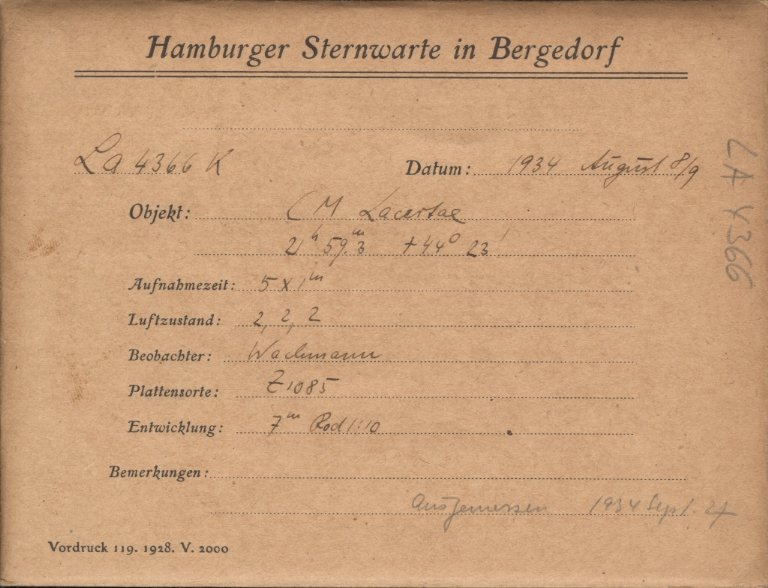 Hamburger Sternwarte in Bergedorf
La 4366 K Datum: 1934 August 8/9
Objekt: CM Lacertae
21h 59m.3 +44° 23'
Aufnahmezeit: 5 x 1m
Luftzustand: 2, 2, 2
Beobachter: Wachmann
Plattensorte: Z 1085
Entwicklung: 7m Rod 1:10
Bemerkungen:
Ausgemessen 1934 Sept. 27
Vordruck 119. 1928. V. 2000
LA 4366